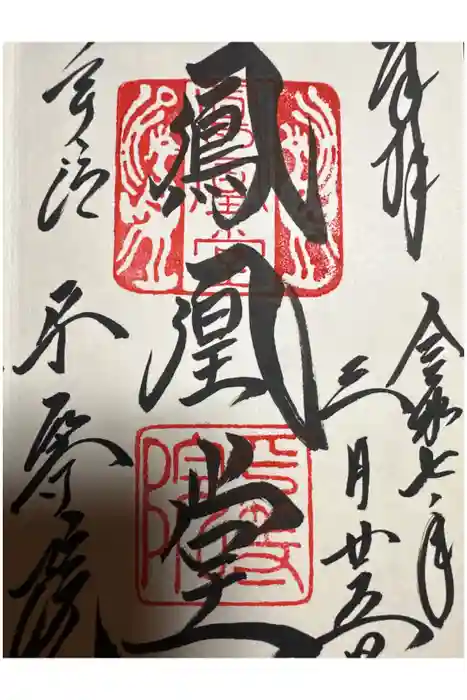 奉拝
令和七年
三月廿五日
鳳凰堂
鳳凰堂
平等院
宇治
平等院